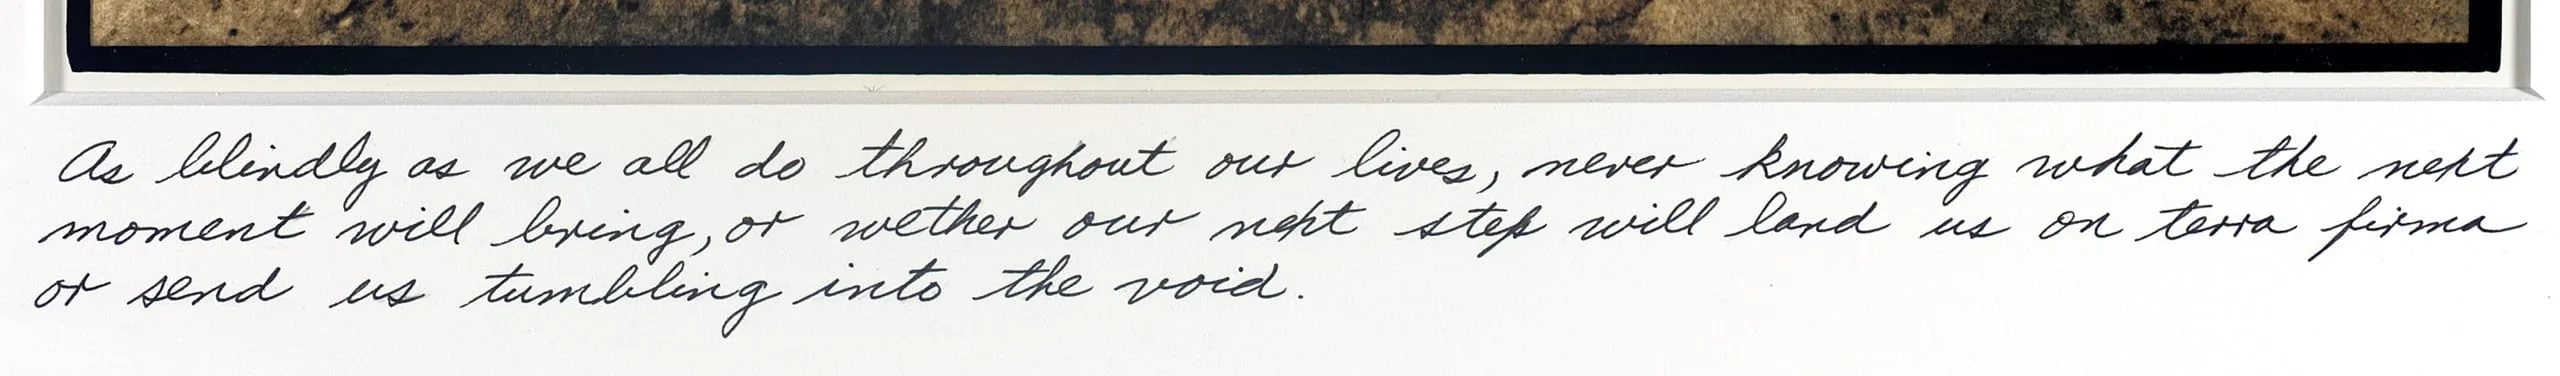 As blindly as we all do throughout our lives, never knowing what the next
moment will bring, or wether our next step will land us on terra firma
or send us tumbling into the void.